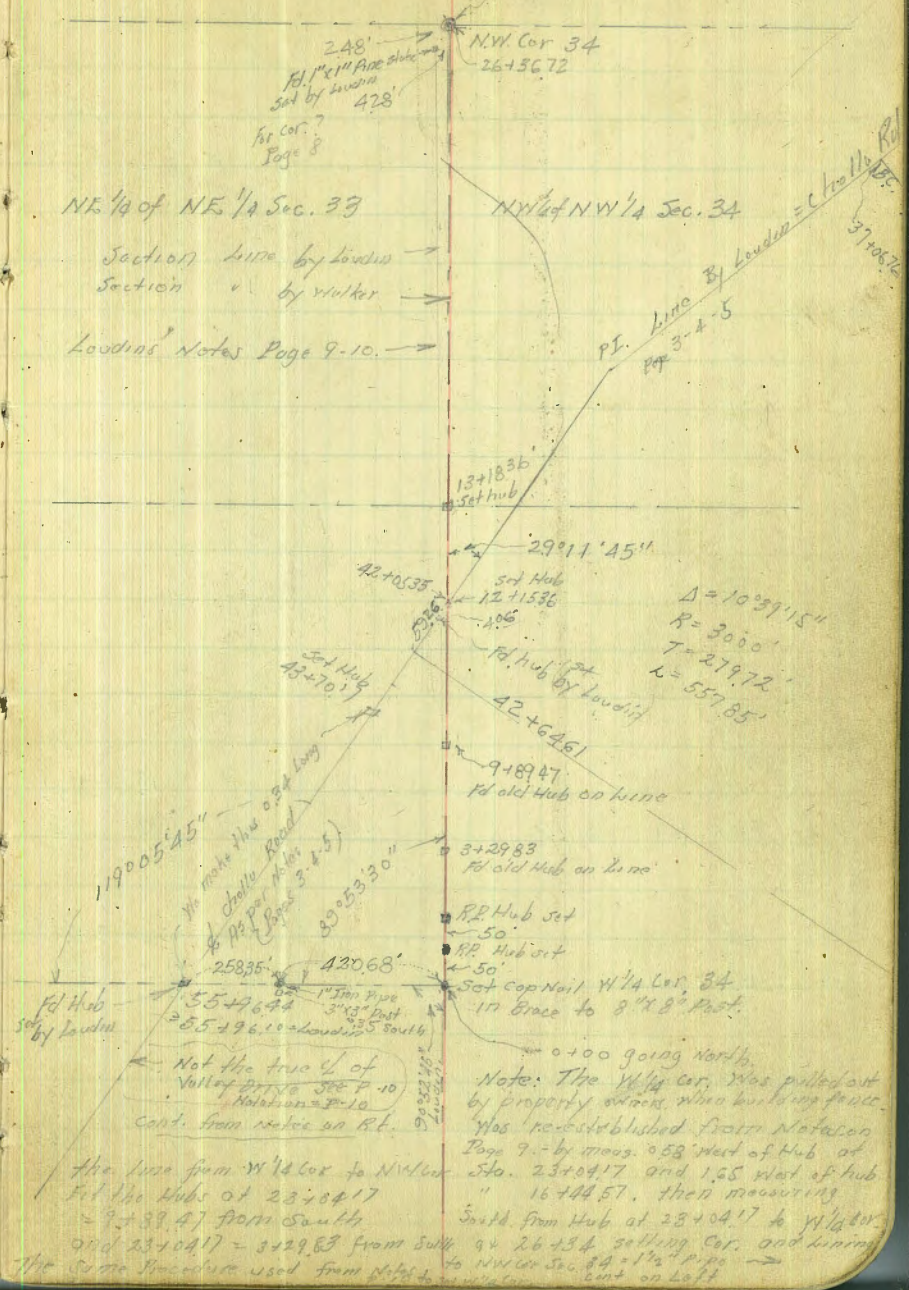 N.W. Cor 34
26+3672
248'
Fd. 1"x1" Pine Stake
Set by Loudin
428'
For Cor.?
Page 8
NE 1/4 of NE 1/4 Sec. 33
NW 1/4 of NW 1/4 Sec. 34
Section Line by Loudin
Section " by Walker
Loudins' Notes Page 9-10.
P.I. Line By Loudin = Cholla Rd
Page 3-4-5
B.C.
37+0676
13+1836
Set hub
29°11'45"
42+0535
Set Hub
12+1536
406
5926
Fd. hub set
by Loudin
Δ = 10°39'15"
R = 3000'
T = 279.72'
L = 557.85'
Set Hub
43+7019
42+6461
9+8947
Fd old Hub on Line
119°05'45"
We make this 0.34 Long
¢ Cholla Road
As per Notes
(Pages 3-4-5)
89°53'30"
3+2983
Fd old Hub on Line
R.P. Hub set
50'
R.P. Hub set
50'
25835'
42068'
Set Cop Nail W 1/4 Cor. 34
in Brace to 8"x8" Post.
Fd Hub
Set by Loudin
55+9644
55+96.10 = Loudin
1" Iron Pipe
3"x3" Post
0.35 South
0+00 going North
Not the true ¢ of
Valley Drive See P-10
Notation = P-10
Cont. from Notes on Rt.
90°52'40"
Loudin
Note: The W 1/4 Cor. Was pulled out
by property owners when building fence
Was re-established from Notes on
Page 9. - by meas. 058 West of Hub at
Sta. 23+0417 and 1.65 West of hub
" 16+44.57. then measuring
South from Hub at 23+04.17 to W 1/4 Cor.
at 26+34 setting Cor. and Lining
to NW Cor Sec 34 = 1 1/2" Pipe
cont on Left
the line from W 1/4 Cor to NW Cor
Fit the Hubs at 23+0417
= 9+89.47 from South
and 23+0417 = 3+29.83 from South
The Same Procedure used from Notes